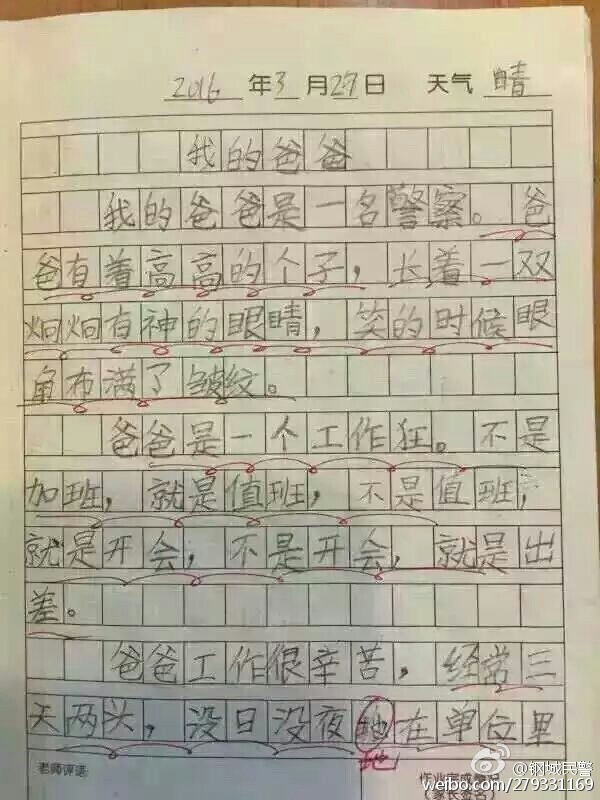 2016年3月27日 天气 晴
我的爸爸
我的爸爸是一名警察。爸
爸有着高高的个子，长着一双
炯炯有神的眼睛，笑的时候眼
角布满了皱纹。
爸爸是一个工作狂。不是
加班，就是值班，不是值班，
就是开会，不是开会，就是出
差。
爸爸工作很辛苦，经常三
天两头，没日没夜地在单位里
地
老师评语：
作业完成情况
（家长签名）
@钢城民警
weibo.com/279331169